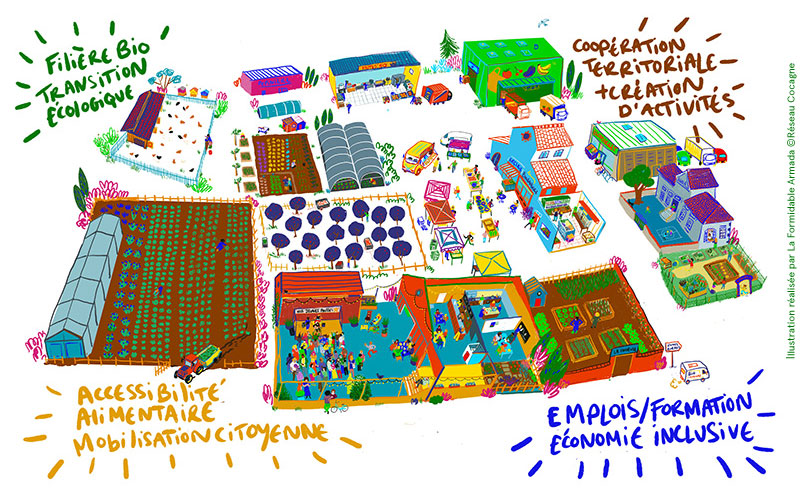 FILIÈRE BIO
TRANSITION
ÉCOLOGIQUE
COOPÉRATION
TERRITORIALE
+CRÉATION
D'ACTIVITÉS
ACCESSIBILITÉ
ALIMENTAIRE
MOBILISATION CITOYENNE
EMPLOIS/FORMATION
ÉCONOMIE INCLUSIVE
Illustration réalisée par La Formidable Armada ©Réseau Cocagne